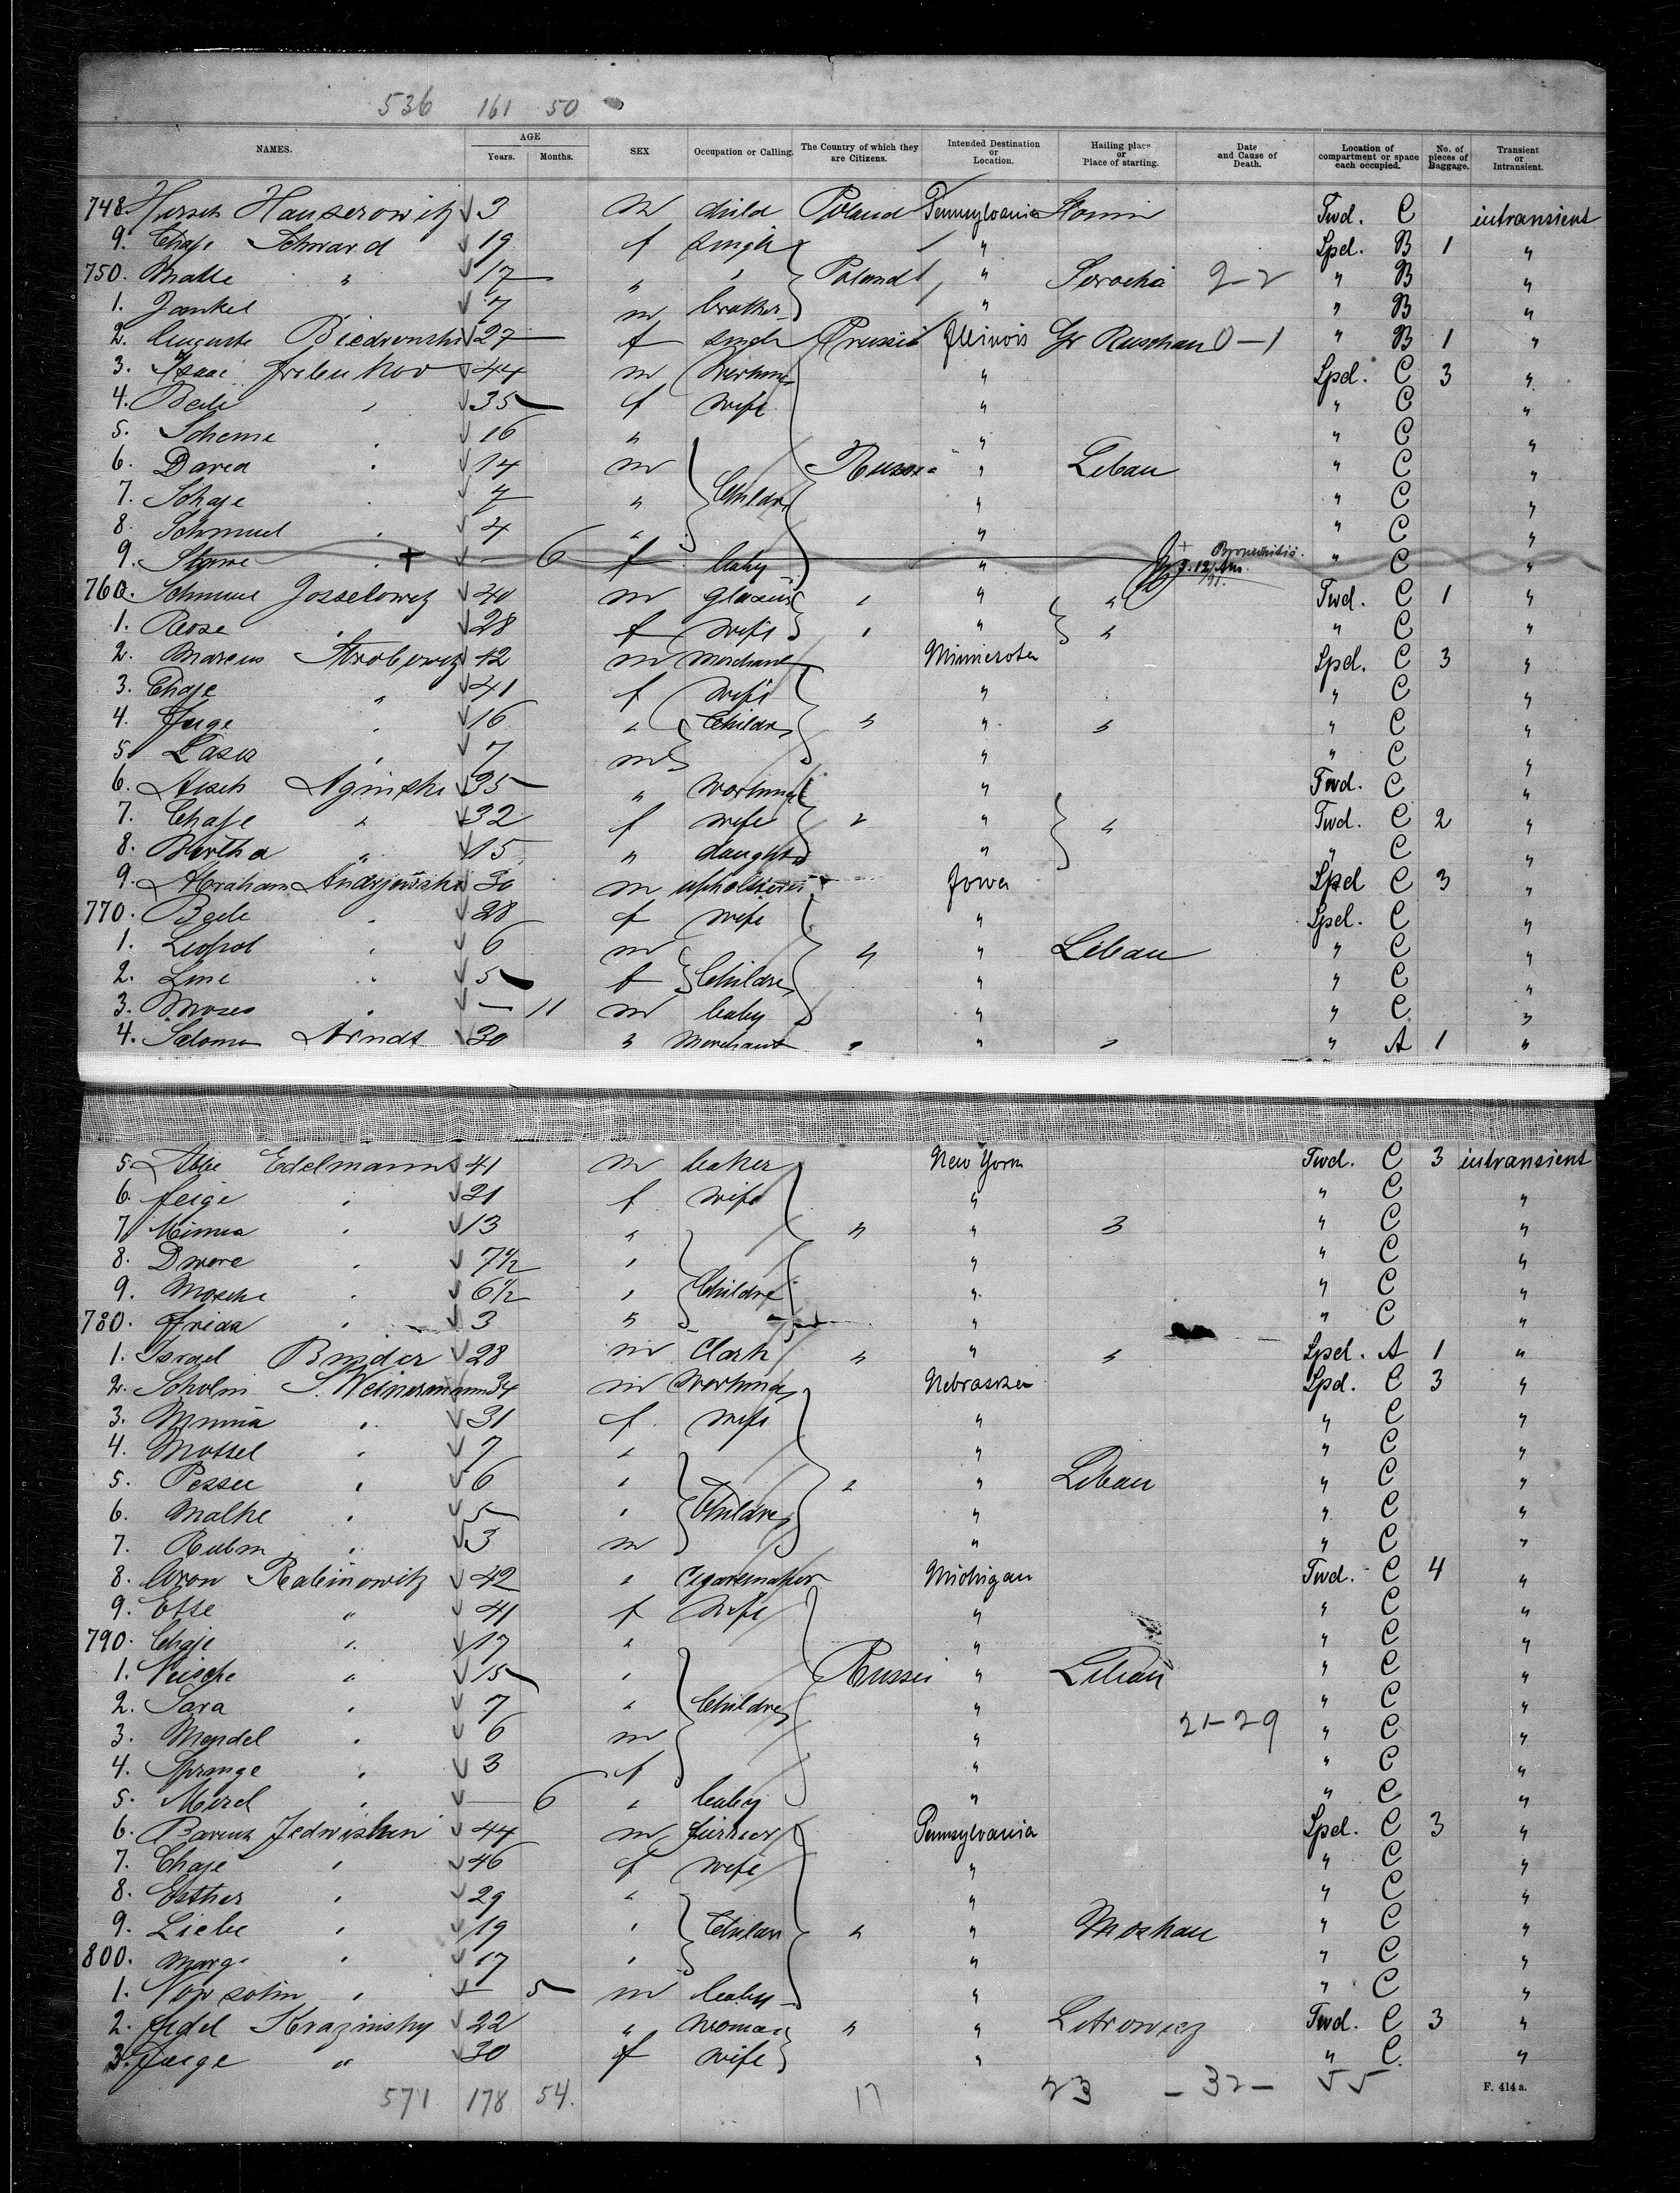 536 161 50
NAMES. AGE Years. Months. SEX Occupation or Calling. The Country of which they are Citizens. Intended Destination or Location. Hailing place or Place of starting. Date and Cause of Death. Location of compartment or space each occupied. No. of pieces of Baggage. Transient or Intransient.
748. Hirsch Hauserowitz 3 m child Poland Pennsylvania Fwd. C intransient
9. Chaje Schward 19 f single " Spd. B 1 "
750. Malke " 17 " " Poland " 2-2 " B "
1. Jankel 7 m brother " " B "
2. Auguste 27 f single Prussia Illinois Gr Ruschau 0-1 " B 1 "
3. Isaac 44 m workman " Spd. C 3 "
4. Beile " 35 f wife " " C "
5. Scheme " 16 " " " C "
6. David " 14 m Russia " Libau " C "
7. Schaje " 7 " Childr " " C "
8. Schmuel " 4 " " " C "
9. " — 6 f baby " Bronchitis. " C "
760. Schmul Josselowitz 40 m glazier " " " Fwd. C 1 "
1. Rose " 28 f wife " " " " C "
2. Marcus 42 m Merchant Minnesota Spd. C 3 "
3. Chaje " 41 f wife " " C "
4. Feige " 16 " Childr " " " " C "
5. " 7 m " " C "
6. Aginski 35 " workman " Fwd. C "
7. Chaje " 32 f wife " " " Fwd. C 2 "
8. Bertha " 15 " daught " " C "
9. Abraham Andrjewski 30 m upholsterer Jowa Spd C 3 "
770. Beile " 28 f wife " Spd. C "
1. Leopol " 6 m " " Libau " C "
2. Line " 5 f Childre " " C "
3. Moses " — 11 m baby " " C "
4. Salomo Arndt 30 " Merchant " " " " A 1 "
5. Abbe Edelmann 41 m baker New York Fwd. C 3 intransient
6. Feige " f wife " " C "
7. Minna " 13 " " " " " C "
8. Dwore " 7½ " " " C "
9. Mosche " 6½ " Childre " " C "
780. Frida " 3 " " " C "
1. Israel Binder 28 m Clark " " " Spd. A 1 "
2. Scholm S. Weinermann 34 m Workman Nebraska Spd. C 3 "
3. Minna " 31 f. wife " " C "
4. Mottel " 7 " " " C "
5. Pessee " 6 " " " Libau " C "
6. Malke " 5 " Childre " " C "
7. Rubin " 3 m " " C "
8. Aron Rabinowitz 42 " Cigaremaker Michigan Fwd. C 4 "
9. Ette " 41 f wife " " C "
790. Chaje " 17 " " " C "
1. " 15 " Russi " Libau " C "
2. Sara " 7 " Childre " " C "
3. Mendel " 6 m " 21-29 " C "
4. Sprinze " 3 f " " C "
5. Mirel " — 6 " baby " " C "
6. Baruch Jedwiskin 44 m furrier Pennsylvania Spd. C 3 "
7. Chaje " 46 f wife " " C "
8. Esther " 29 " " " C "
9. Liebe " 19 " Childre " " Moskau " C "
800. " 17 " " " C "
1. " — 5 m baby " " C "
2. Krazinsky 22 " woman " " Fwd. C 3 "
3. Feige " 30 f wife " " C. "
571 178 54. 17 23 - 32 - 55 F. 414 a.